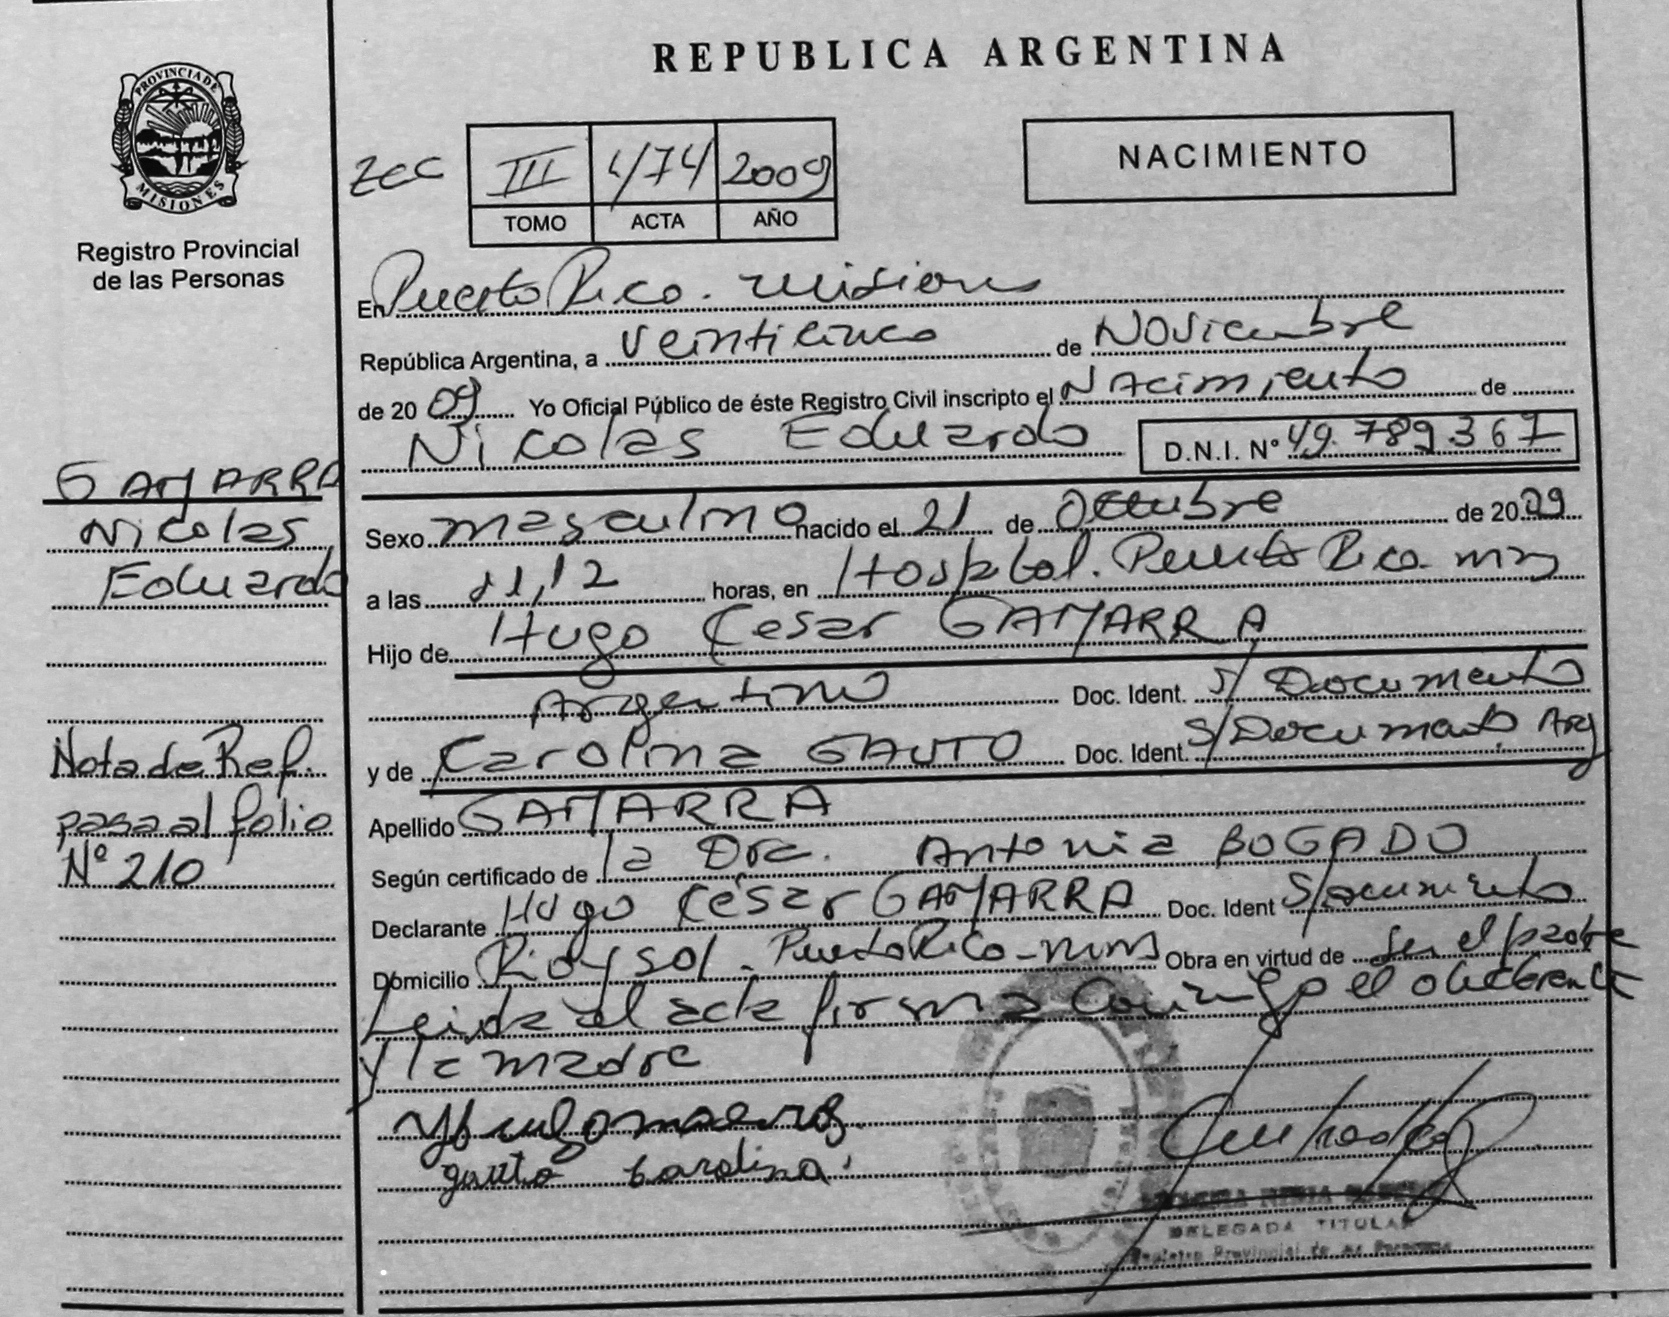 PROVINCIA DE
MISIONES
Registro Provincial
de las Personas
REPUBLICA ARGENTINA
NACIMIENTO
III 474 2009
TOMO ACTA AÑO
En Puerto Rico. Misiones
República Argentina, a veinticinco de Noviembre
de 2009 Yo Oficial Público de éste Registro Civil inscripto el Nacimiento de
Nicolás Eduardo D.N.I. Nº 49.789.367
Sexo masculino nacido el 21 de Octubre de 2009
a las 11,12 horas, en Hospital. Puerto Rico. mns
Hijo de Hugo César GAMARRA
Argentino Doc. Ident. S/Documento
y de Carolina GAUTO Doc. Ident. S/Documento Arg
Apellido GAMARRA
Según certificado de la Dra. Antonia BOGADO
Declarante Hugo César GAMARRA Doc. Ident S/documento
Domicilio Rio y sol - Puerto Rico - mns Obra en virtud de ser el padre
Leida el acta firma conmigo el declarante
y la madre
gauto carolina
DELEGADA TITULAR
Registro Provincial de las Personas
GAMARRA
Nicolas
Eduardo
Nota de Ref.
pasa al folio
Nº 210